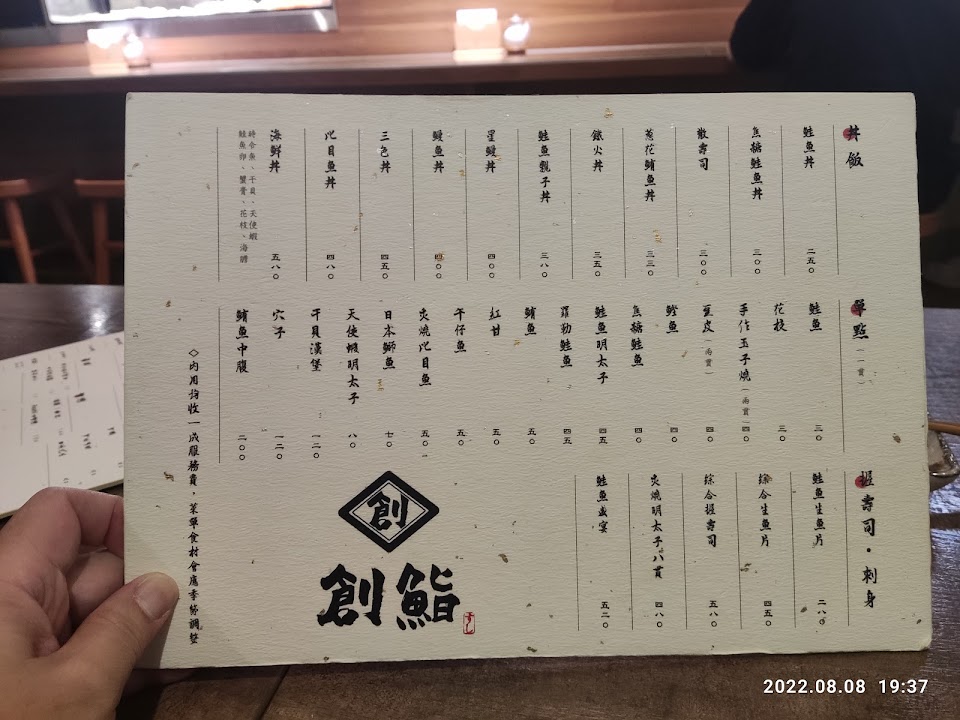 丼飯
鮭魚丼 二五〇
焦糖鮭魚丼 三〇〇
散壽司 三〇〇
蔥花鮪魚丼 三三〇
鐵火丼 三五〇
鮭魚親子丼 三八〇
星鰻丼 四〇〇
鰻魚丼 四〇〇
三色丼 四五〇
比目魚丼 四八〇
海鮮丼 五八〇
時令魚、干貝、天使蝦
鮭魚卵、蟹膏、花枝、海膽
單點（一貫）
鮭魚 三〇
花枝 三〇
手作玉子燒（兩貫） 四〇
豆皮（兩貫） 四〇
鰹魚 四〇
焦糖鮭魚 四〇
鮭魚明太子 四五
羅勒鮭魚 四五
鮪魚 五〇
紅甘 五〇
午仔魚 五〇
炙燒比目魚 五〇
日本鰤魚 七〇
天使蝦明太子 八〇
干貝漢堡 一二〇
穴子 一二〇
鮪魚中腹 二〇〇
握壽司・刺身
鮭魚生魚片 二八〇
綜合生魚片 四五〇
綜合握壽司 五八〇
炙燒明太子八貫 四八〇
鮭魚盛宴 五二〇
創
創鮨
◇內用均收一成服務費，菜單食材會應季節調整
2022.08.08 19:37